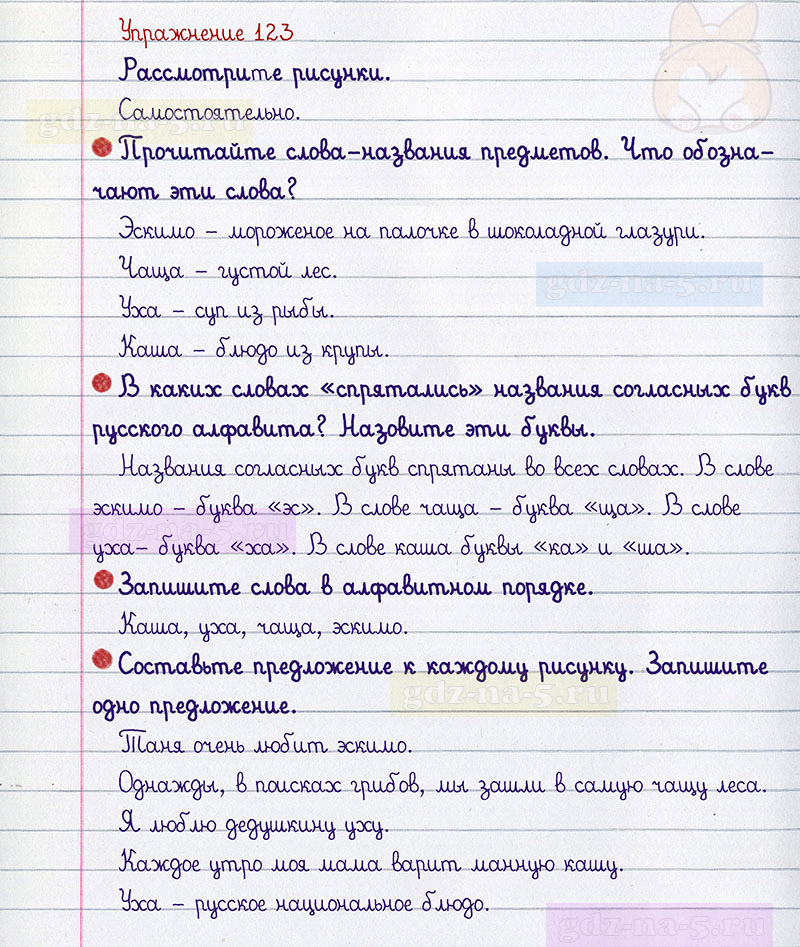 Упражнение 123
Рассмотрите рисунки.
Самостоятельно.
gdz-na-5.ru
Прочитайте слова-названия предметов. Что обозна-
чают эти слова?
Эскимо – мороженое на палочке в шоколадной глазури.
Чаща – густой лес.
gdz-na-5.ru
Уха – суп из рыбы.
Каша – блюдо из крупы.
В каких словах «спрятались» названия согласных букв
русского алфавита? Назовите эти буквы.
Названия согласных букв спрятаны во всех словах. В слове
эскимо – буква «эс». В слове чаща – буква «ща». В слове
gdz-na-5.ru
уха– буква «ха». В слове каша буквы «ка» и «ша».
Запишите слова в алфавитном порядке.
Каша, уха, чаща, эскимо.
Составьте предложение к каждому рисунку. Запишите
gdz-na-5.ru
одно предложение.
Таня очень любит эскимо.
Однажды, в поисках грибов, мы зашли в самую чащу леса.
Я люблю дедушкину уху.
Каждое утро моя мама варит манную кашу.
Уха – русское национальное блюдо.
gdz-na-5.ru